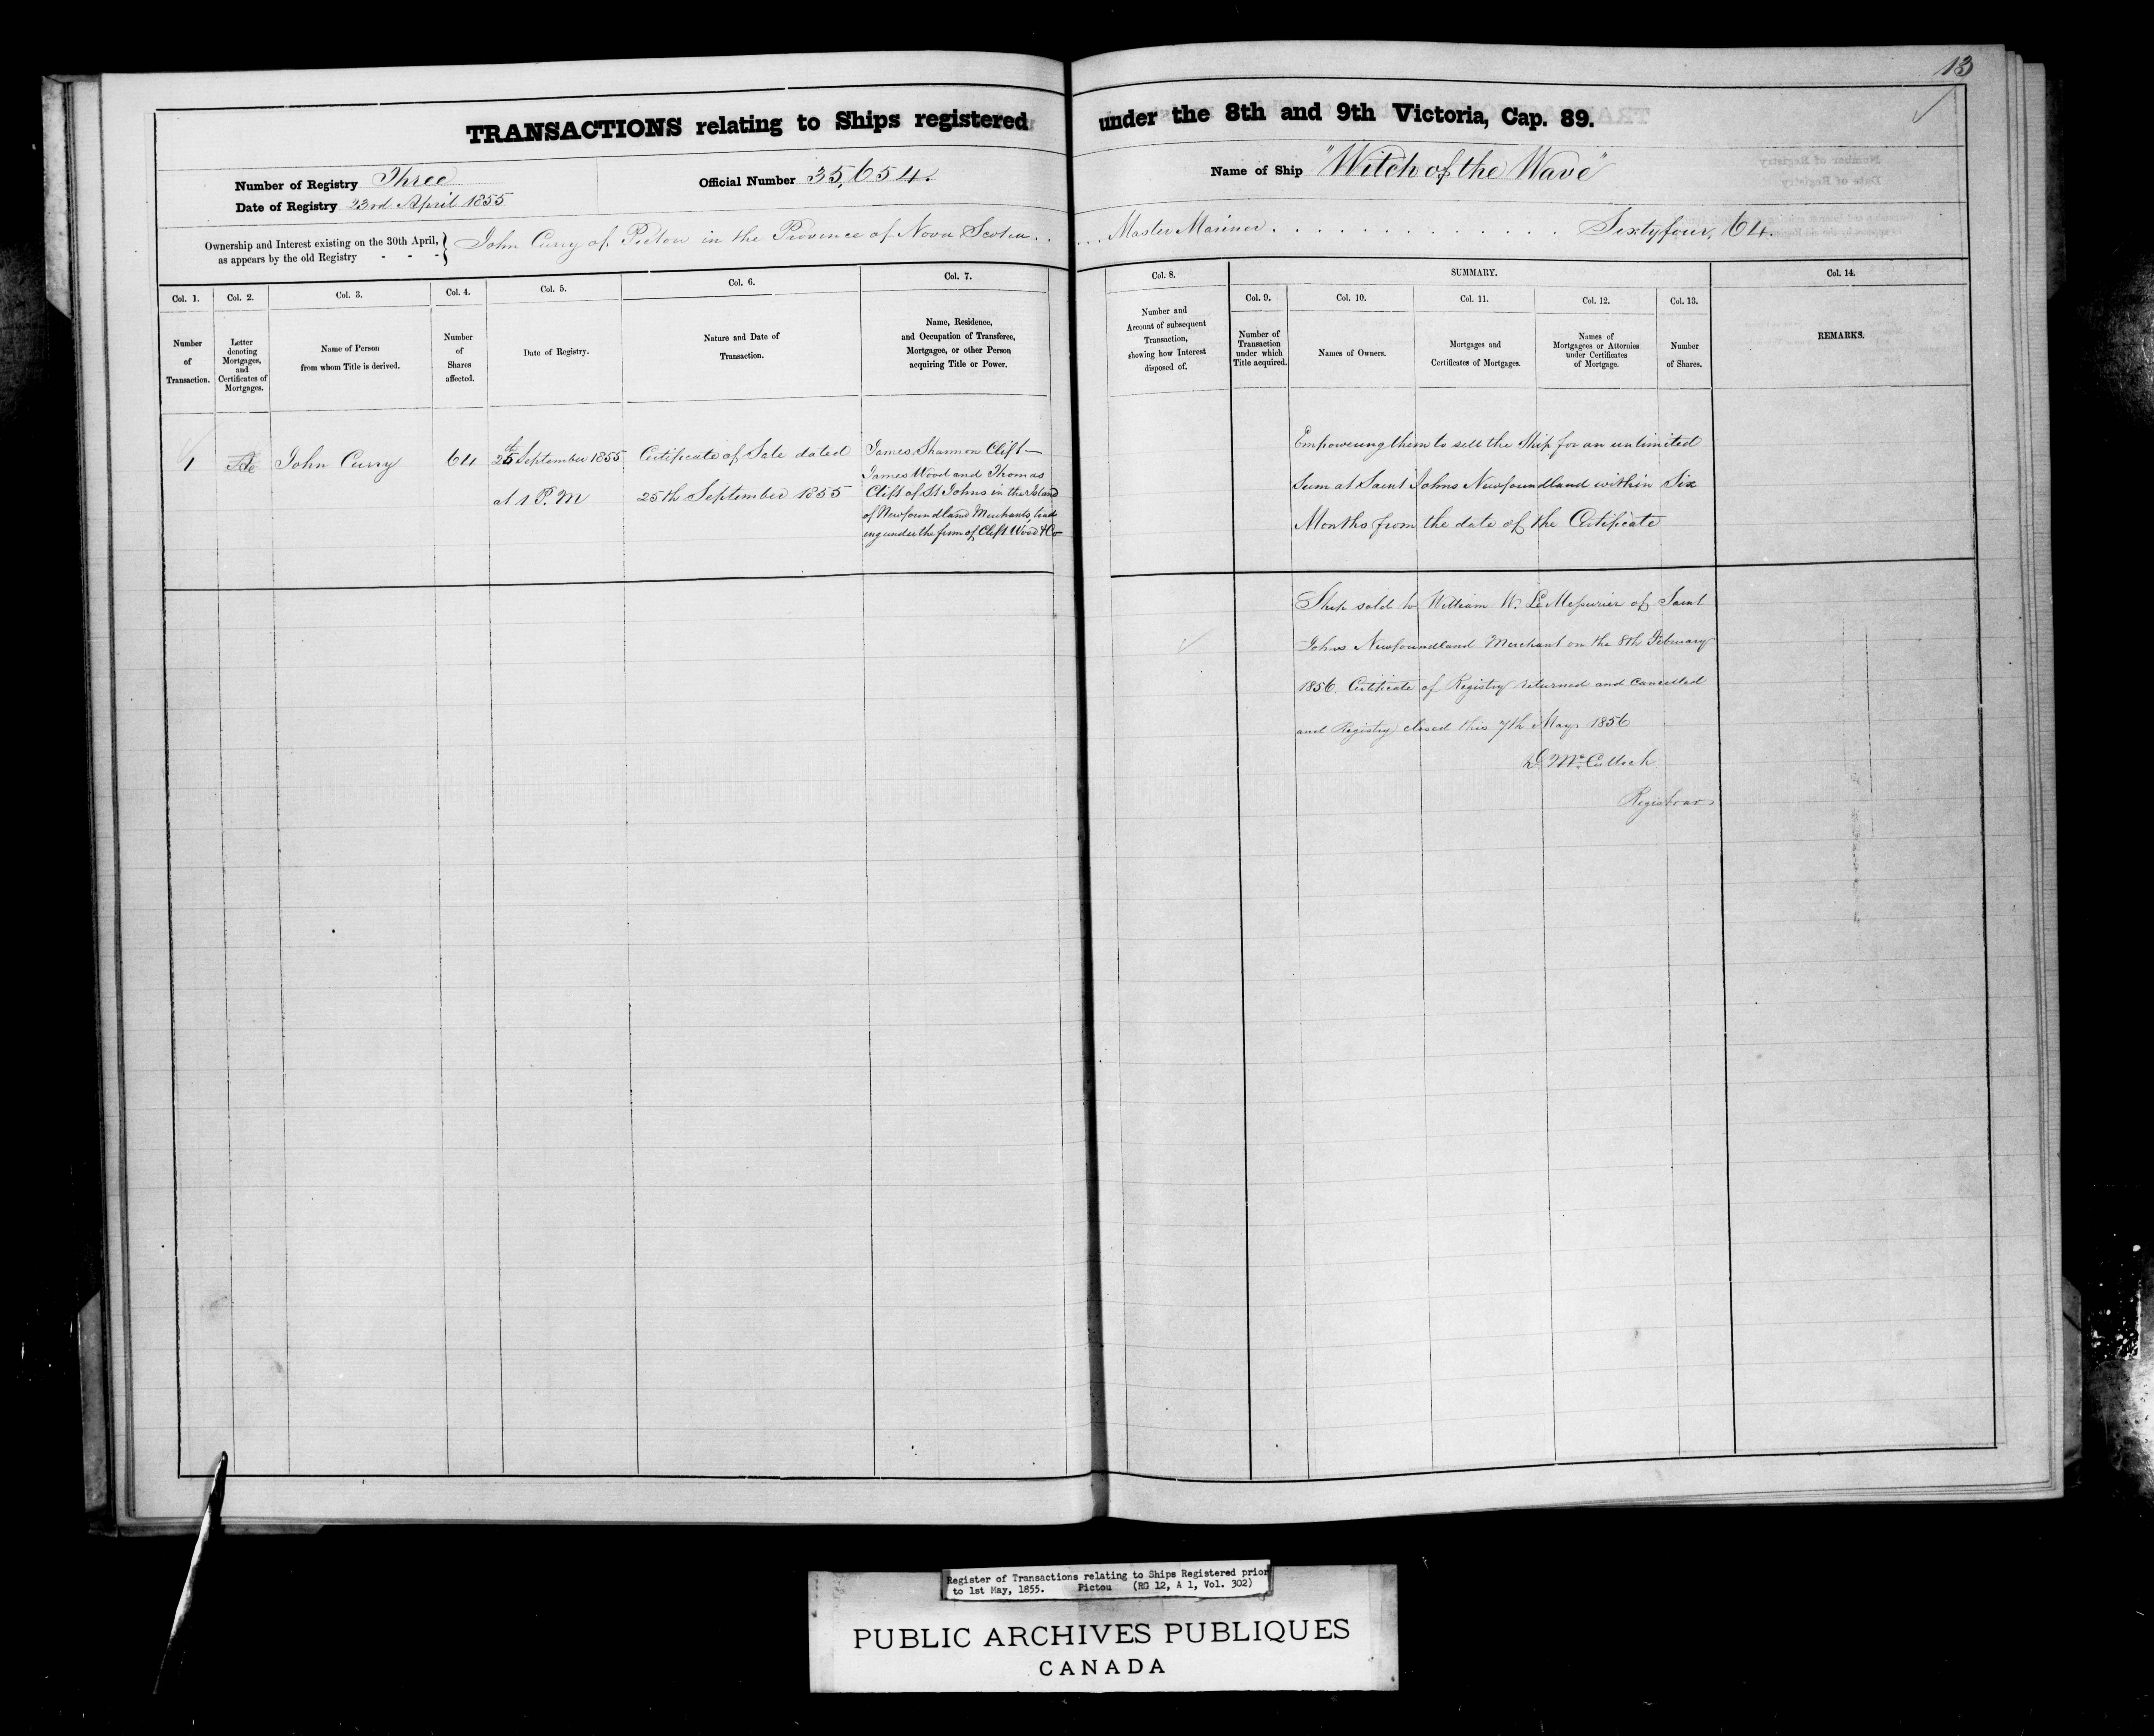 13
TRANSACTIONS relating to Ships registered under the 8th and 9th Victoria, Cap. 89.
Number of Registry Three
Official Number 35,654.
Name of Ship "Witch of the Wave"
Date of Registry 23rd April 1855
Ownership and Interest existing on the 30th April,
as appears by the old Registry - - -
John Curry of Pictou in the Province of Nova Scotia . . . . . Master Mariner . . . . . . . . . . . . . Sixtyfour, 64.
Col. 1.
Number
of
Transaction.
Col. 2.
Letter
denoting
Mortgages,
and
Certificates of
Mortgages.
Col. 3.
Name of Person
from whom Title is derived.
Col. 4.
Number
of
Shares
affected.
Col. 5.
Date of Registry.
Col. 6.
Nature and Date of
Transaction.
Col. 7.
Name, Residence,
and Occupation of Transferee,
Mortgagee, or other Person
acquiring Title or Power.
Col. 8.
Number and
Account of subsequent
Transaction,
showing how Interest
disposed of.
SUMMARY.
Col. 9.
Number of
Transaction
under which
Title acquired.
Col. 10.
Names of Owners.
Col. 11.
Mortgages and
Certificates of Mortgages.
Col. 12.
Names of
Mortgagees or Attornies
under Certificates
of Mortgage.
Col. 13.
Number
of Shares.
Col. 14.
REMARKS.
1
John Curry
64
25th September 1855
at 1 P.M
Certificate of Sale dated
25th September 1855
James Shannon Clift—
James Wood and Thomas
Clift of St Johns in the Island
of Newfoundland Merchants, trad
ing under the firm of Clift Wood & Co
Empowering them to sell the Ship for an unlimited
Sum at Saint Johns Newfoundland within Six
Months from the date of the Certificate
Ship sold to William W. Le Messurier of Saint
Johns Newfoundland Merchant on the 8th February
1856. Certificate of Registry returned and cancelled
and Registry closed this 7th May 1856
D. McCulloch
Registrar
Register of Transactions relating to Ships Registered prior
to 1st May, 1855. Pictou (RG 12, A 1, Vol. 302)
PUBLIC ARCHIVES PUBLIQUES
CANADA